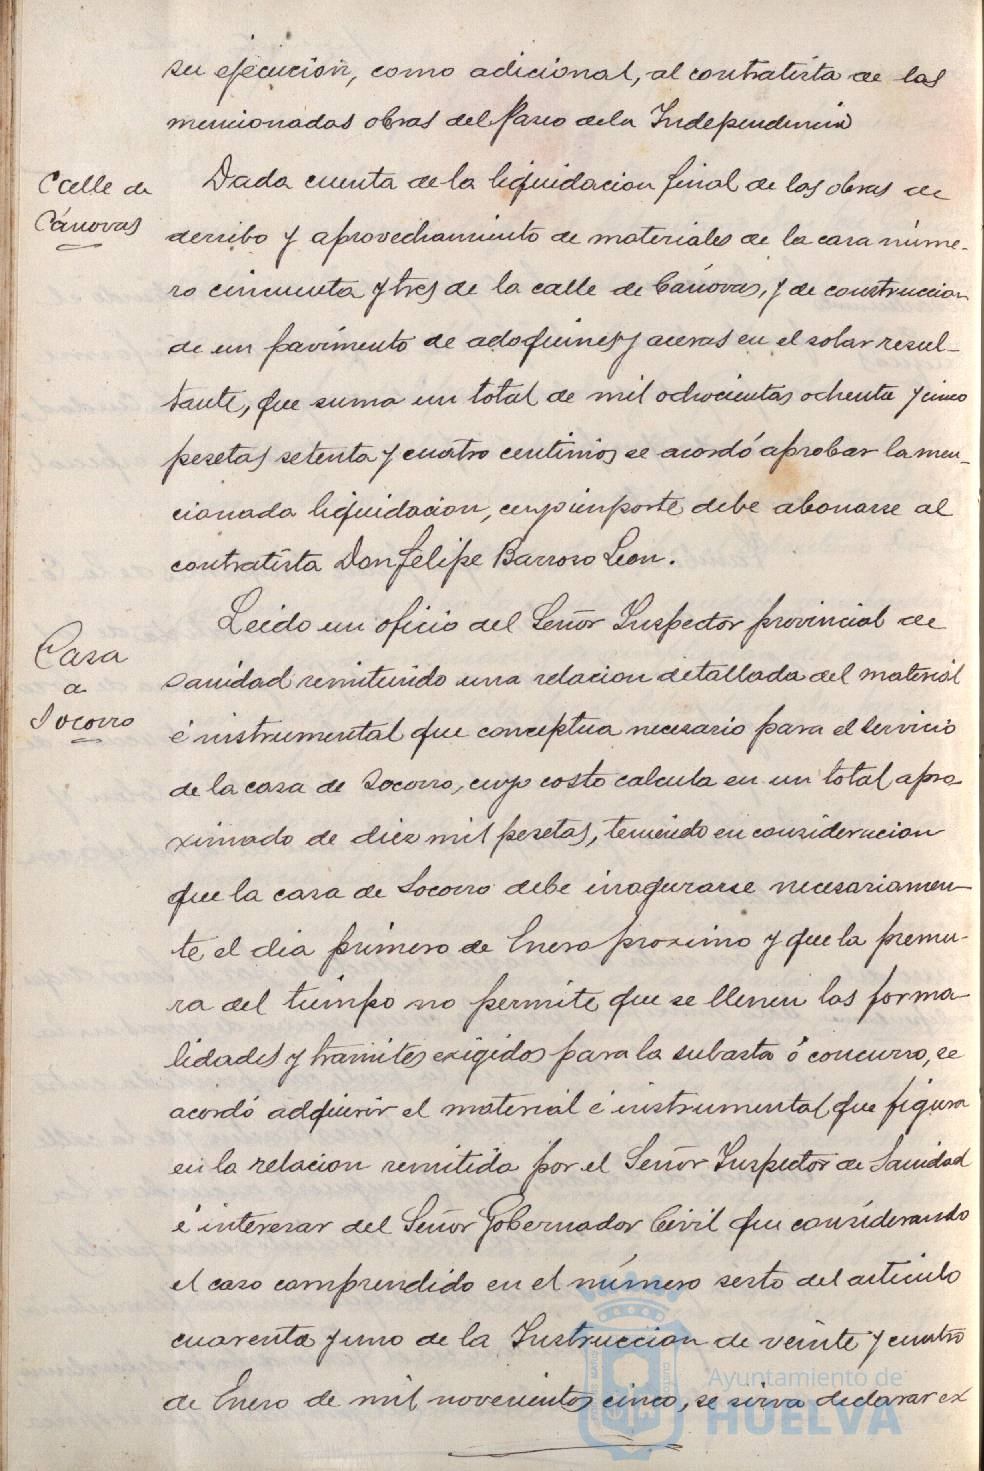 su ejecución, como adicional, al contratista de las
mencionadas obras del Paseo de la Independencia
Calle de
Cánovas
Dada cuenta de la liquidacion final de las obras de
derribo y aprovechamiento de materiales de la casa núme-
ro cincuenta y tres de la calle de Cánovas, y de construccion
de un pavimento de adoquines y aceras en el solar resul-
tante, que suma un total de mil ochocientas ochenta y cinco
pesetas setenta y cuatro centimos se acordó aprobar la men-
cionada liquidacion, cuyo importe debe abonarse al
contratista Don Felipe Barroso Leon.
Casa
a
Socorro
Leido un oficio del Señor Inspector provincial de
sanidad remitiendo una relacion detallada del material
é instrumental que conceptua necesario para el servicio
de la casa de Socorro, cuyo costo calcula en un total apro-
ximado de diez mil pesetas, teniendo en consideracion
que la casa de Socorro debe inagurarse necesariamen-
te el dia primero de Enero proximo y que la premu-
ra del tiempo no permite que se llenen las forma-
lidades y tramites exigidos para la subasta ó concurso, se
acordó adquirir el material é instrumental que figura
en la relacion remitida por el Señor Inspector de Sanidad
é interesar del Señor Gobernador Civil que considerando
el caso comprendido en el número sesto del articulo
cuarenta y uno de la Instruccion de veinte y cuatro
de Enero de mil novecientos cinco, se sirva declarar ex
Ayuntamiento de
HUELVA